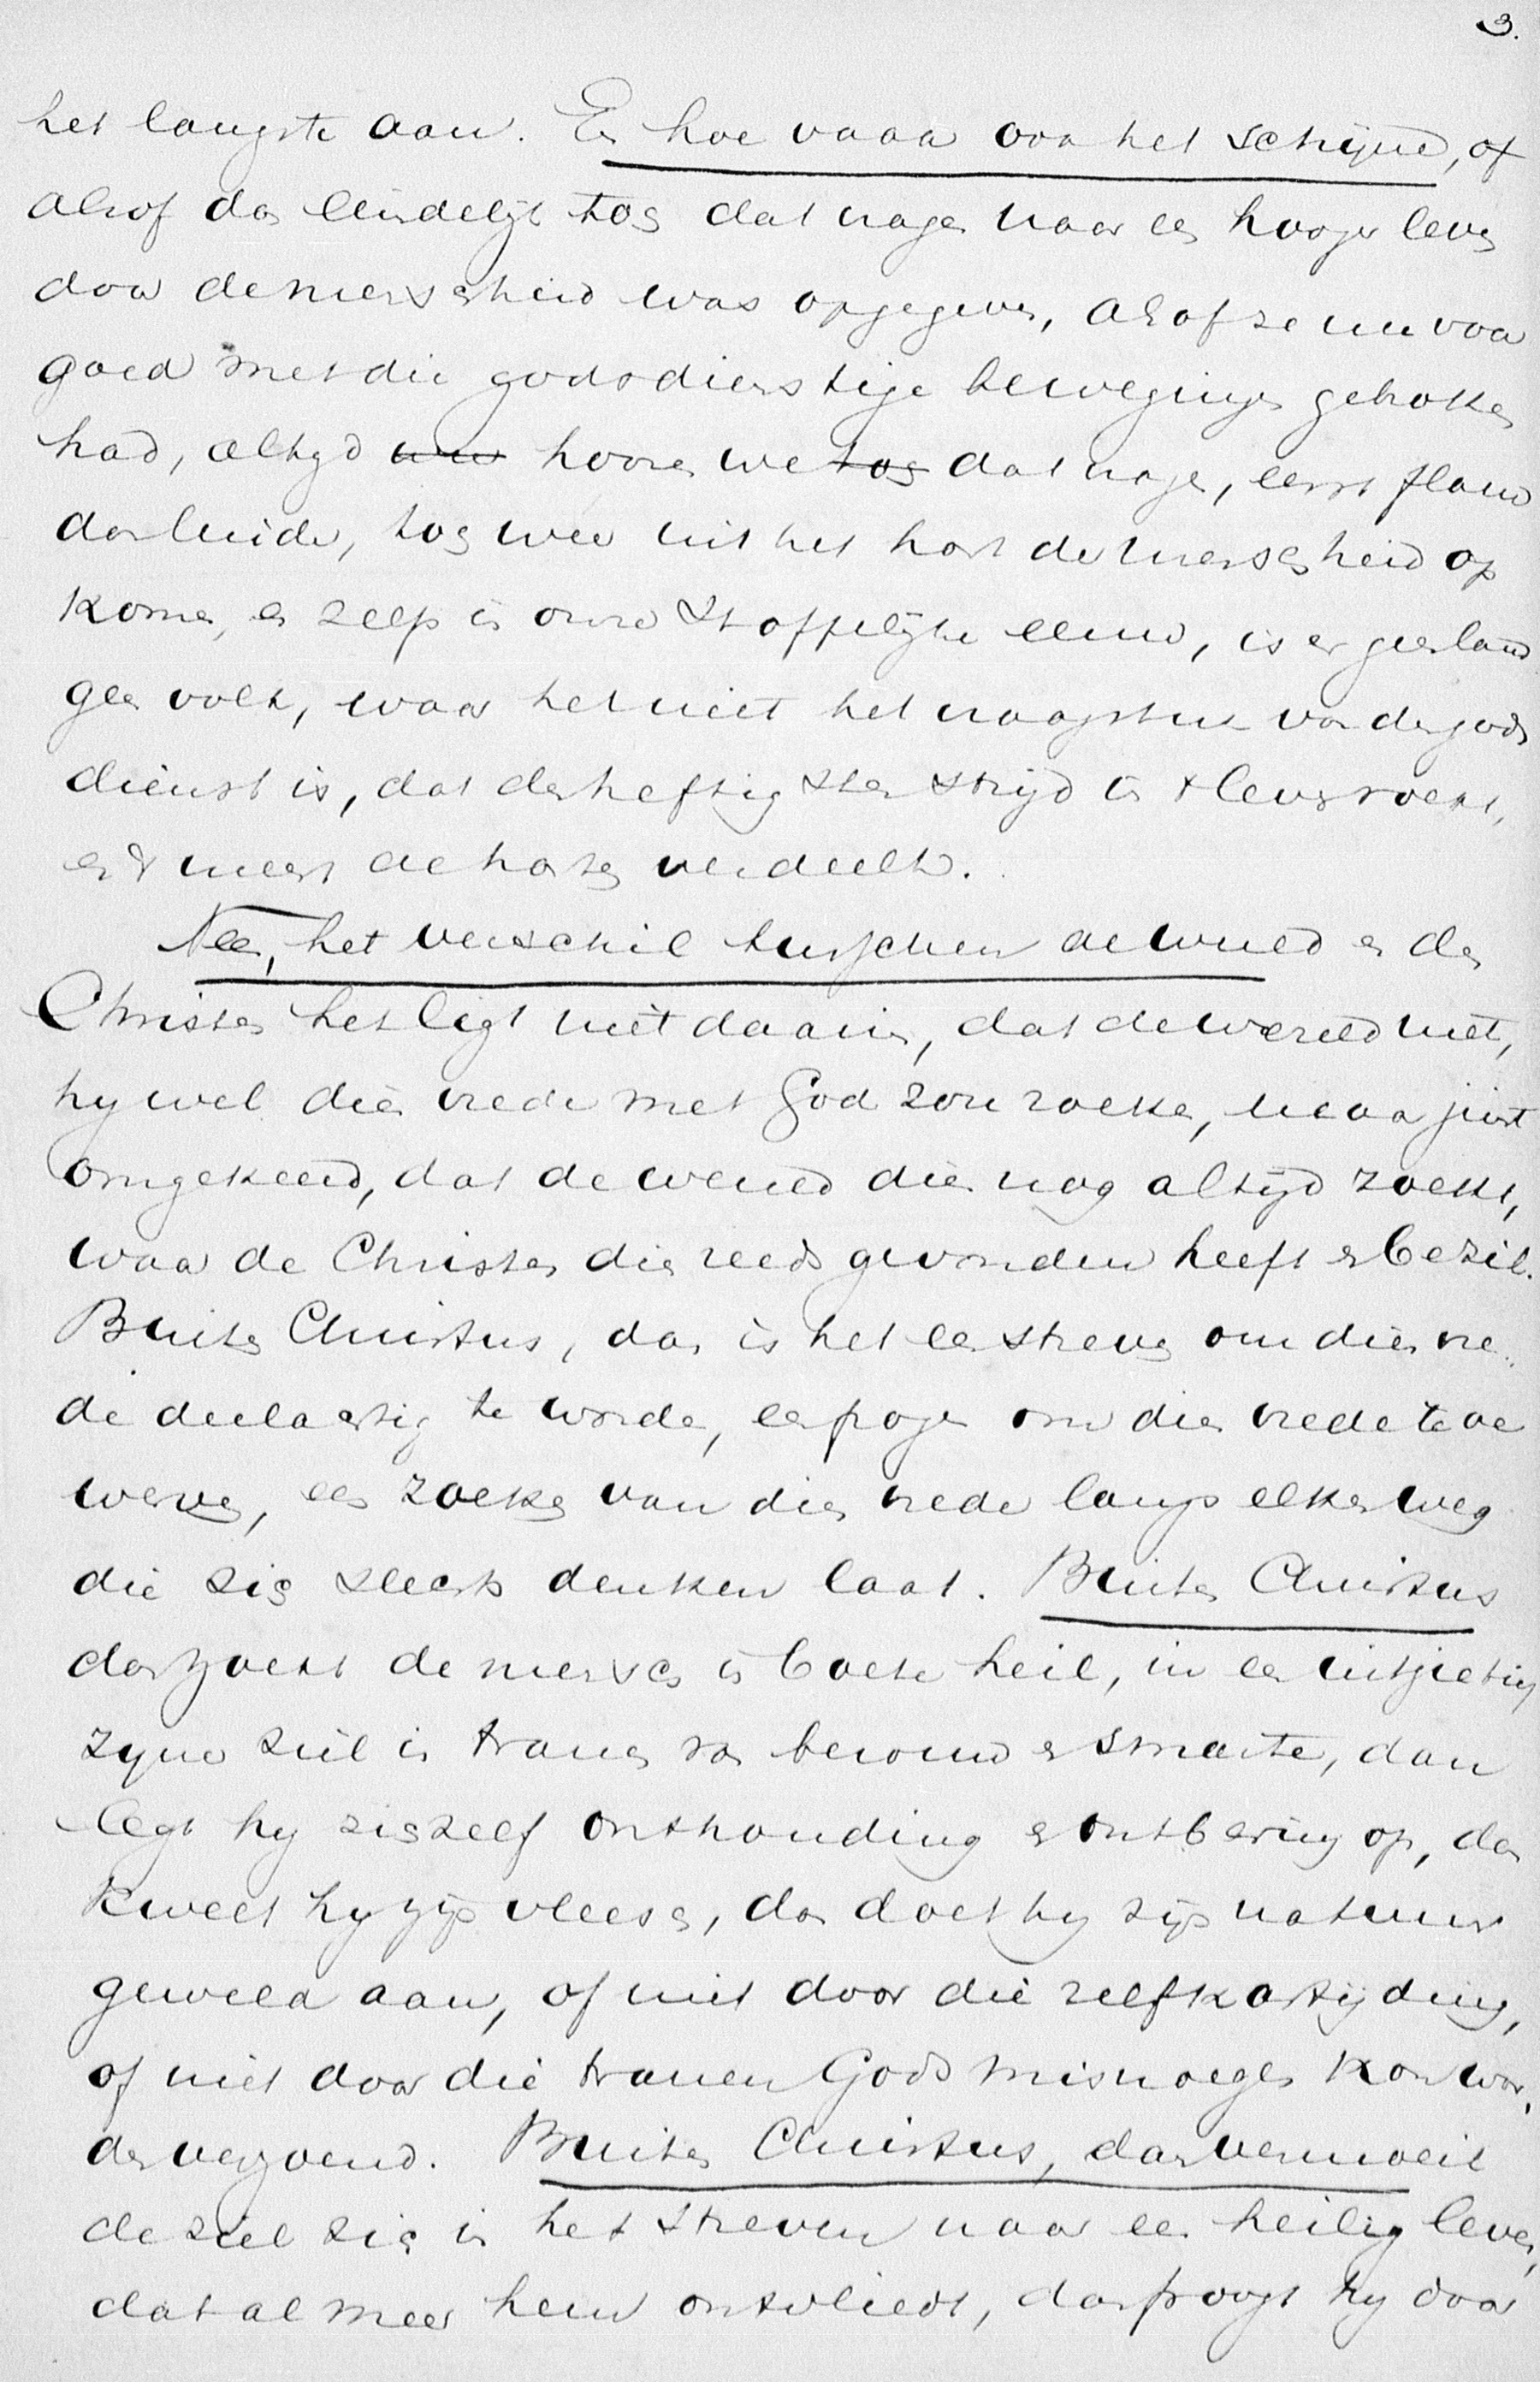 3.
het langste aan. En hoe vaak ook het scheen, of
alsof dan eindelijk tog dat vragen naar een hooger leven
door de menscheid was opgegeven, alsof ze nu voor
goed met die godsdienstige bewegingen gebroken
had, altyd hooren we tog dat vragen, eerst flauw
dan luider, tog weer uit het hart der menscheid op
komen, en zelfs in onze stoffelijke eeuw, is er geen land
geen volk, waar het niet het vraagstuk van den gods
dienst is, dat den heftigsten strijd in t leven roept,
en t meest de harten verdeelt.
Neen, het verschil tusschen de wereld en den
Christen het ligt niet daarin, dat de wereld niet,
hy wel dien vrede met God zou zoeken, maar juist
omgekeerd, dat de wereld dien nog altijd zoekt,
waar de Christen dien reeds gevonden heeft en bezit.
Buiten Christus, dan is het een streven om dien vre
de deelachtig te worden, een pogen om dien vrede te ver
werven, een zoeken van dien vrede langs elken weg
die zig slechts denken laat. Buiten Christus
dan zoekt de mensch in boete heil, in een uitgieting
zyner ziel in tranen van berouw en smarte, dan
legt hy zigzelf onthouding en ontbering op, dan
kwelt hy zijn vleesch, dan doet hy zijn natuur
geweld aan, of niet door die zelfkastijding,
of niet door die tranen Gods misnoegen kon wor
den verzoend. Buiten Christus, dan vermoeit
de ziel zig in het streven naar een heilig leven,
dat al meer hem ontvliedt, dan poogt hy door